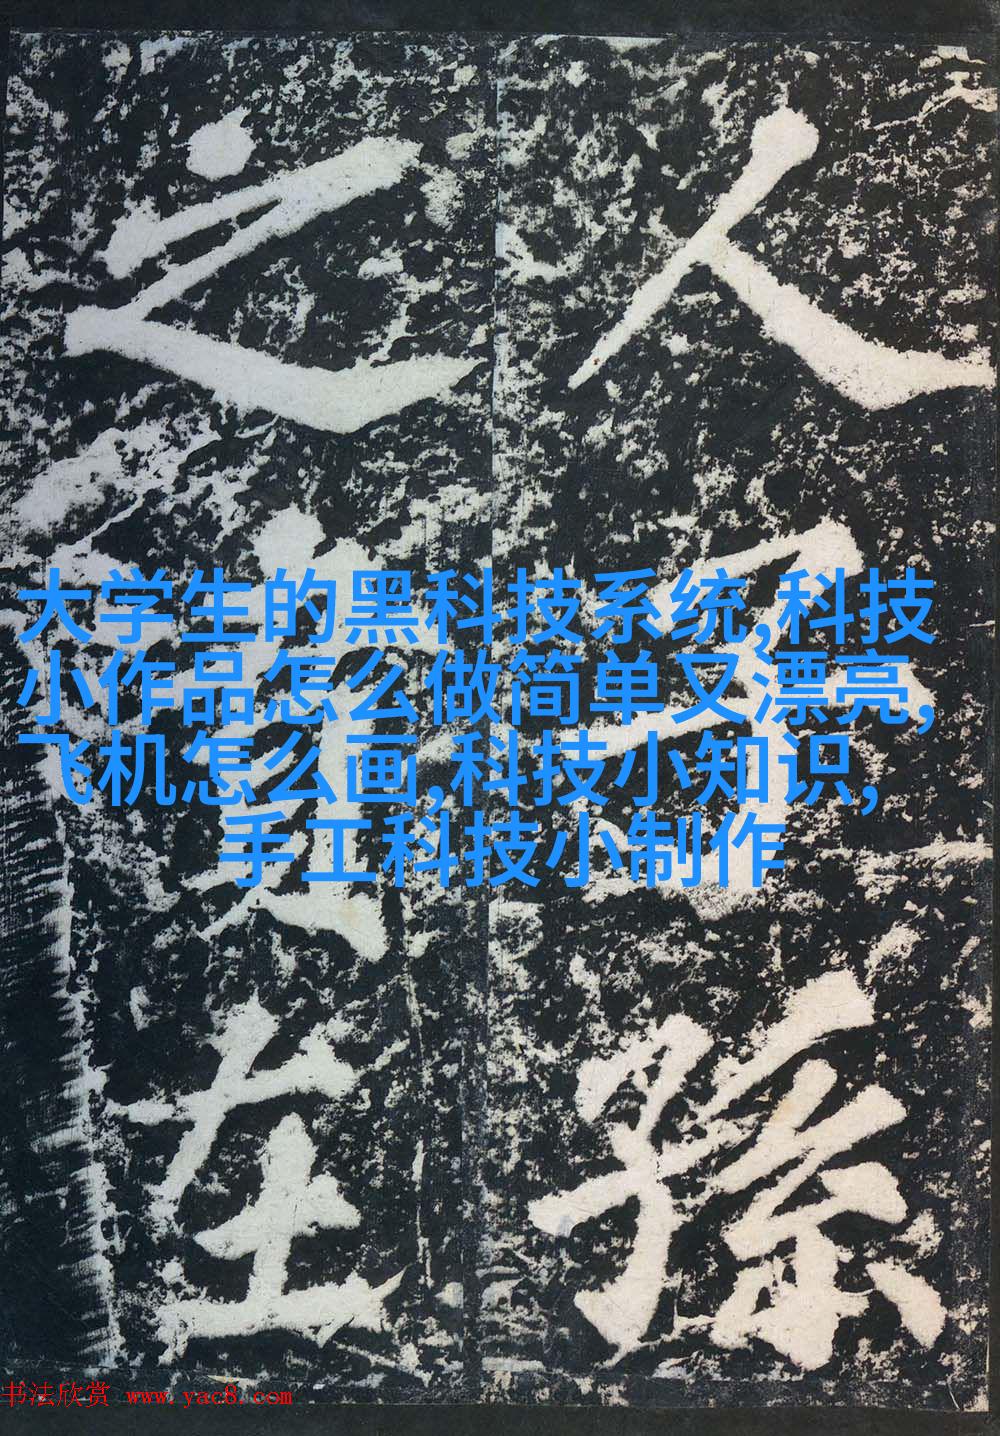 人 孫
之 在
大学生的黑科技系统,科技
小作品怎么做简单又漂亮,
飞机怎么画,科技小知识,
手工科技小制作
书法欣赏 www.yac8.com